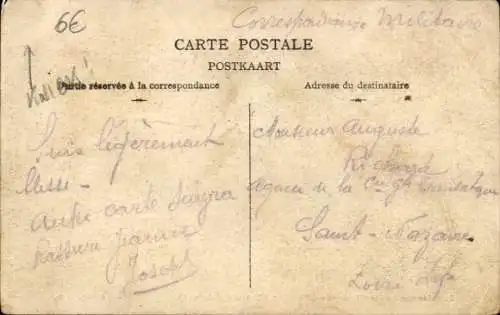 6€
Correspondance Militaire
CARTE POSTALE
POSTKAART
Partie réservée à la correspondance
Adresse du destinataire
Suis légèrement
blessé -
Autre carte suivra
Rassure Jeanne
Joseph
Monsieur Auguste
Agence de la Cie Gle
Saint-Nazaire
Loire Infre